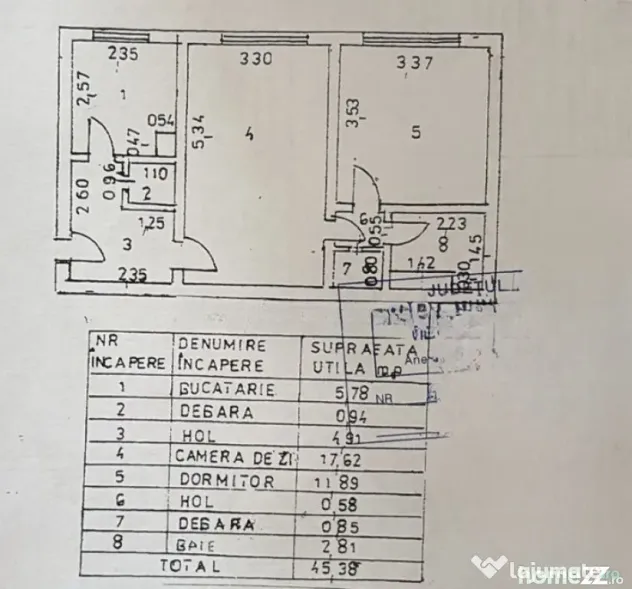 235
330
337
2,57
1
5,34
4
3,53
5
054
047
2 60
0 96
110
2
1,25
3
235
6
0,55
223
8
1,45
7
0,80
1,42
0,30
JUDEŢUL
NR INCAPERE DENUMIRE ÎNCAPERE SUPRAFATA UTILA m.p
Ane
1 BUCATARIE 5,78
NR
2 DEBARA 0,94
3 HOL 4,91
4 CAMERA DE ZI 17,62
5 DORMITOR 11,89
6 HOL 0,58
7 DEBARA 0,85
8 BAIE 2,81
TOTAL 45,38
homezz.ro